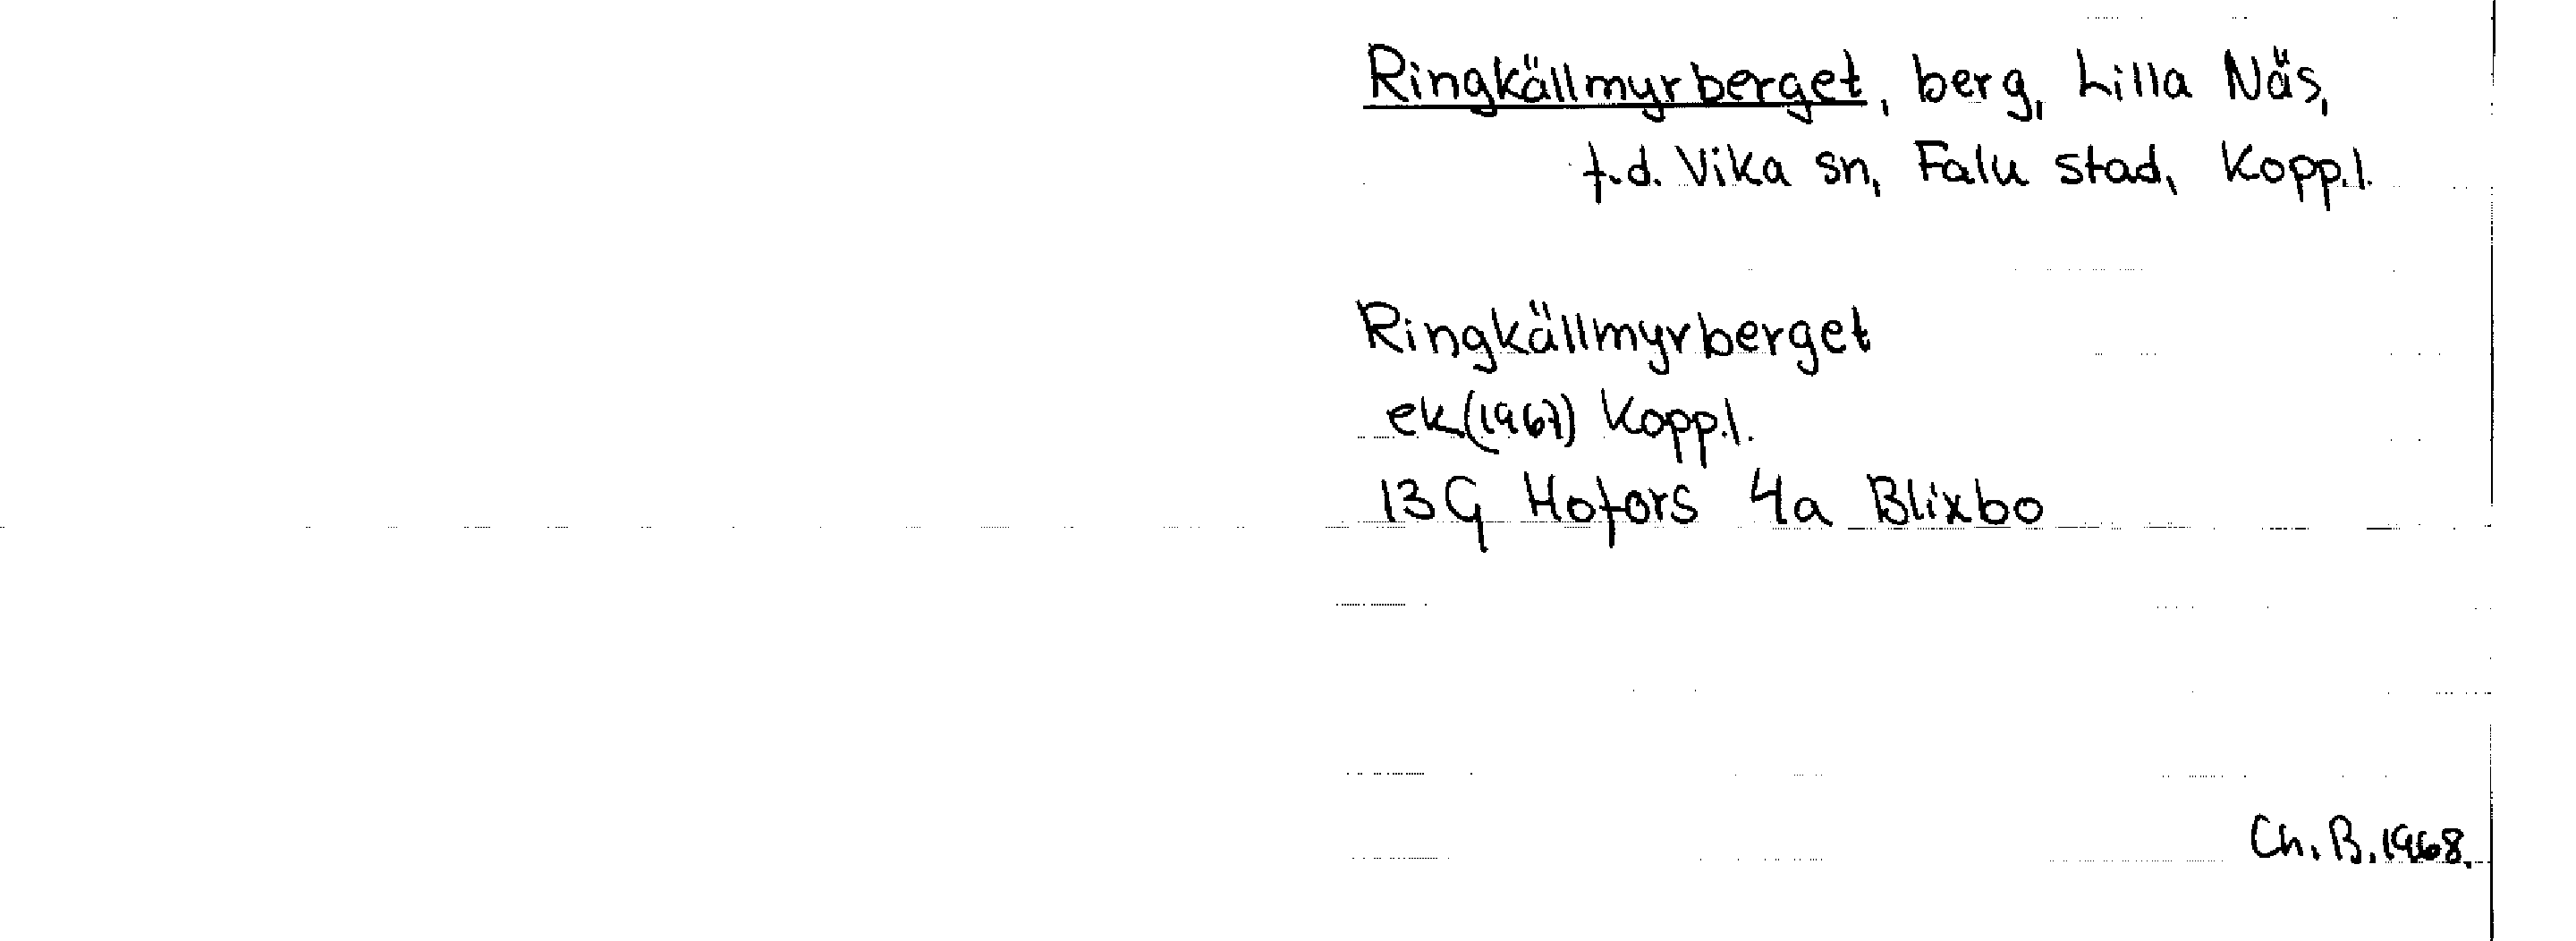 Ringkällmyrberget, berg, Lilla Näs,
f.d. Vika sn, Falu stad, Kopp.l.
Ringkällmyrberget
ek (1967) Kopp.l.
13G Hofors 4a Blixbo
Ch. B. 1968.